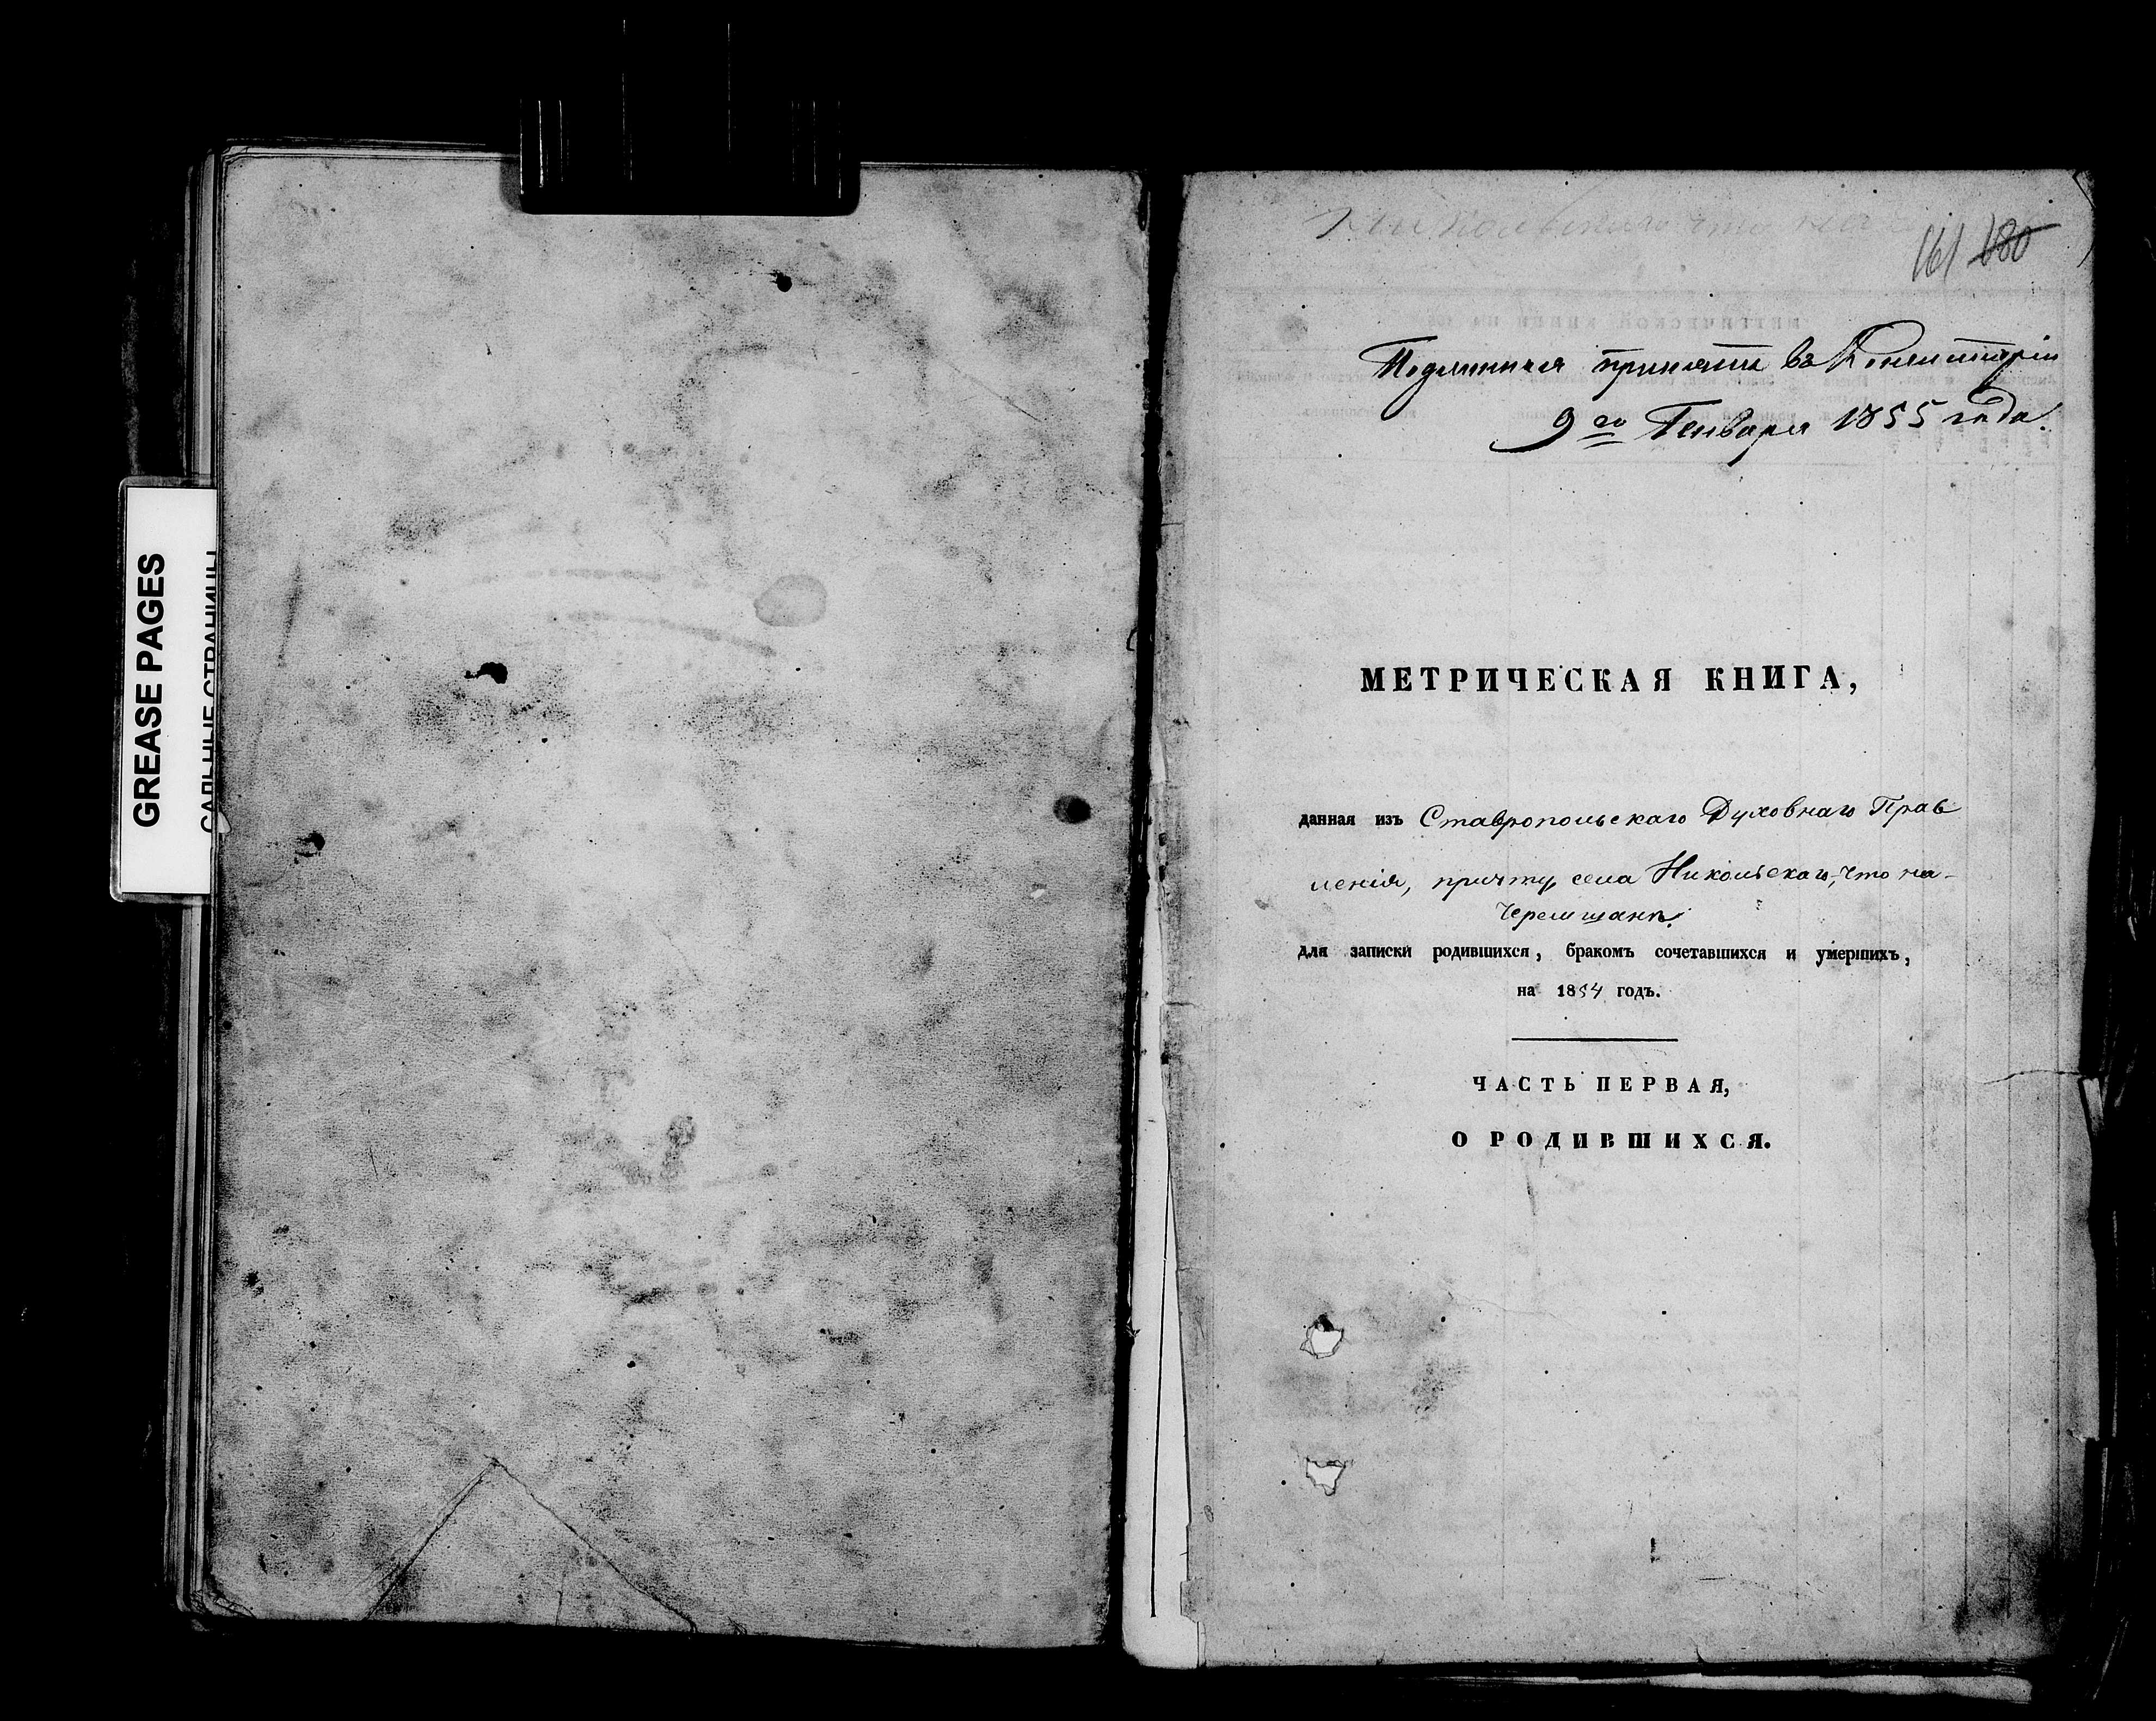 GREASE PAGES
САЛЬНЫЕ СТРАНИЦЫ
Никольскаго что на
161 180
Подлинная принята въ Консисторіи
9го Генваря 1855 года.
МЕТРИЧЕСКАЯ КНИГА,
данная изъ Ставропольскаго Духовнаго Прав
ленія, причту села Никольскаго, что на-
Черемшанѣ.
для записки родившихся, бракомъ сочетавшихся и умершихъ,
на 1854 годъ.
ЧАСТЬ ПЕРВАЯ,
О РОДИВШИХСЯ.